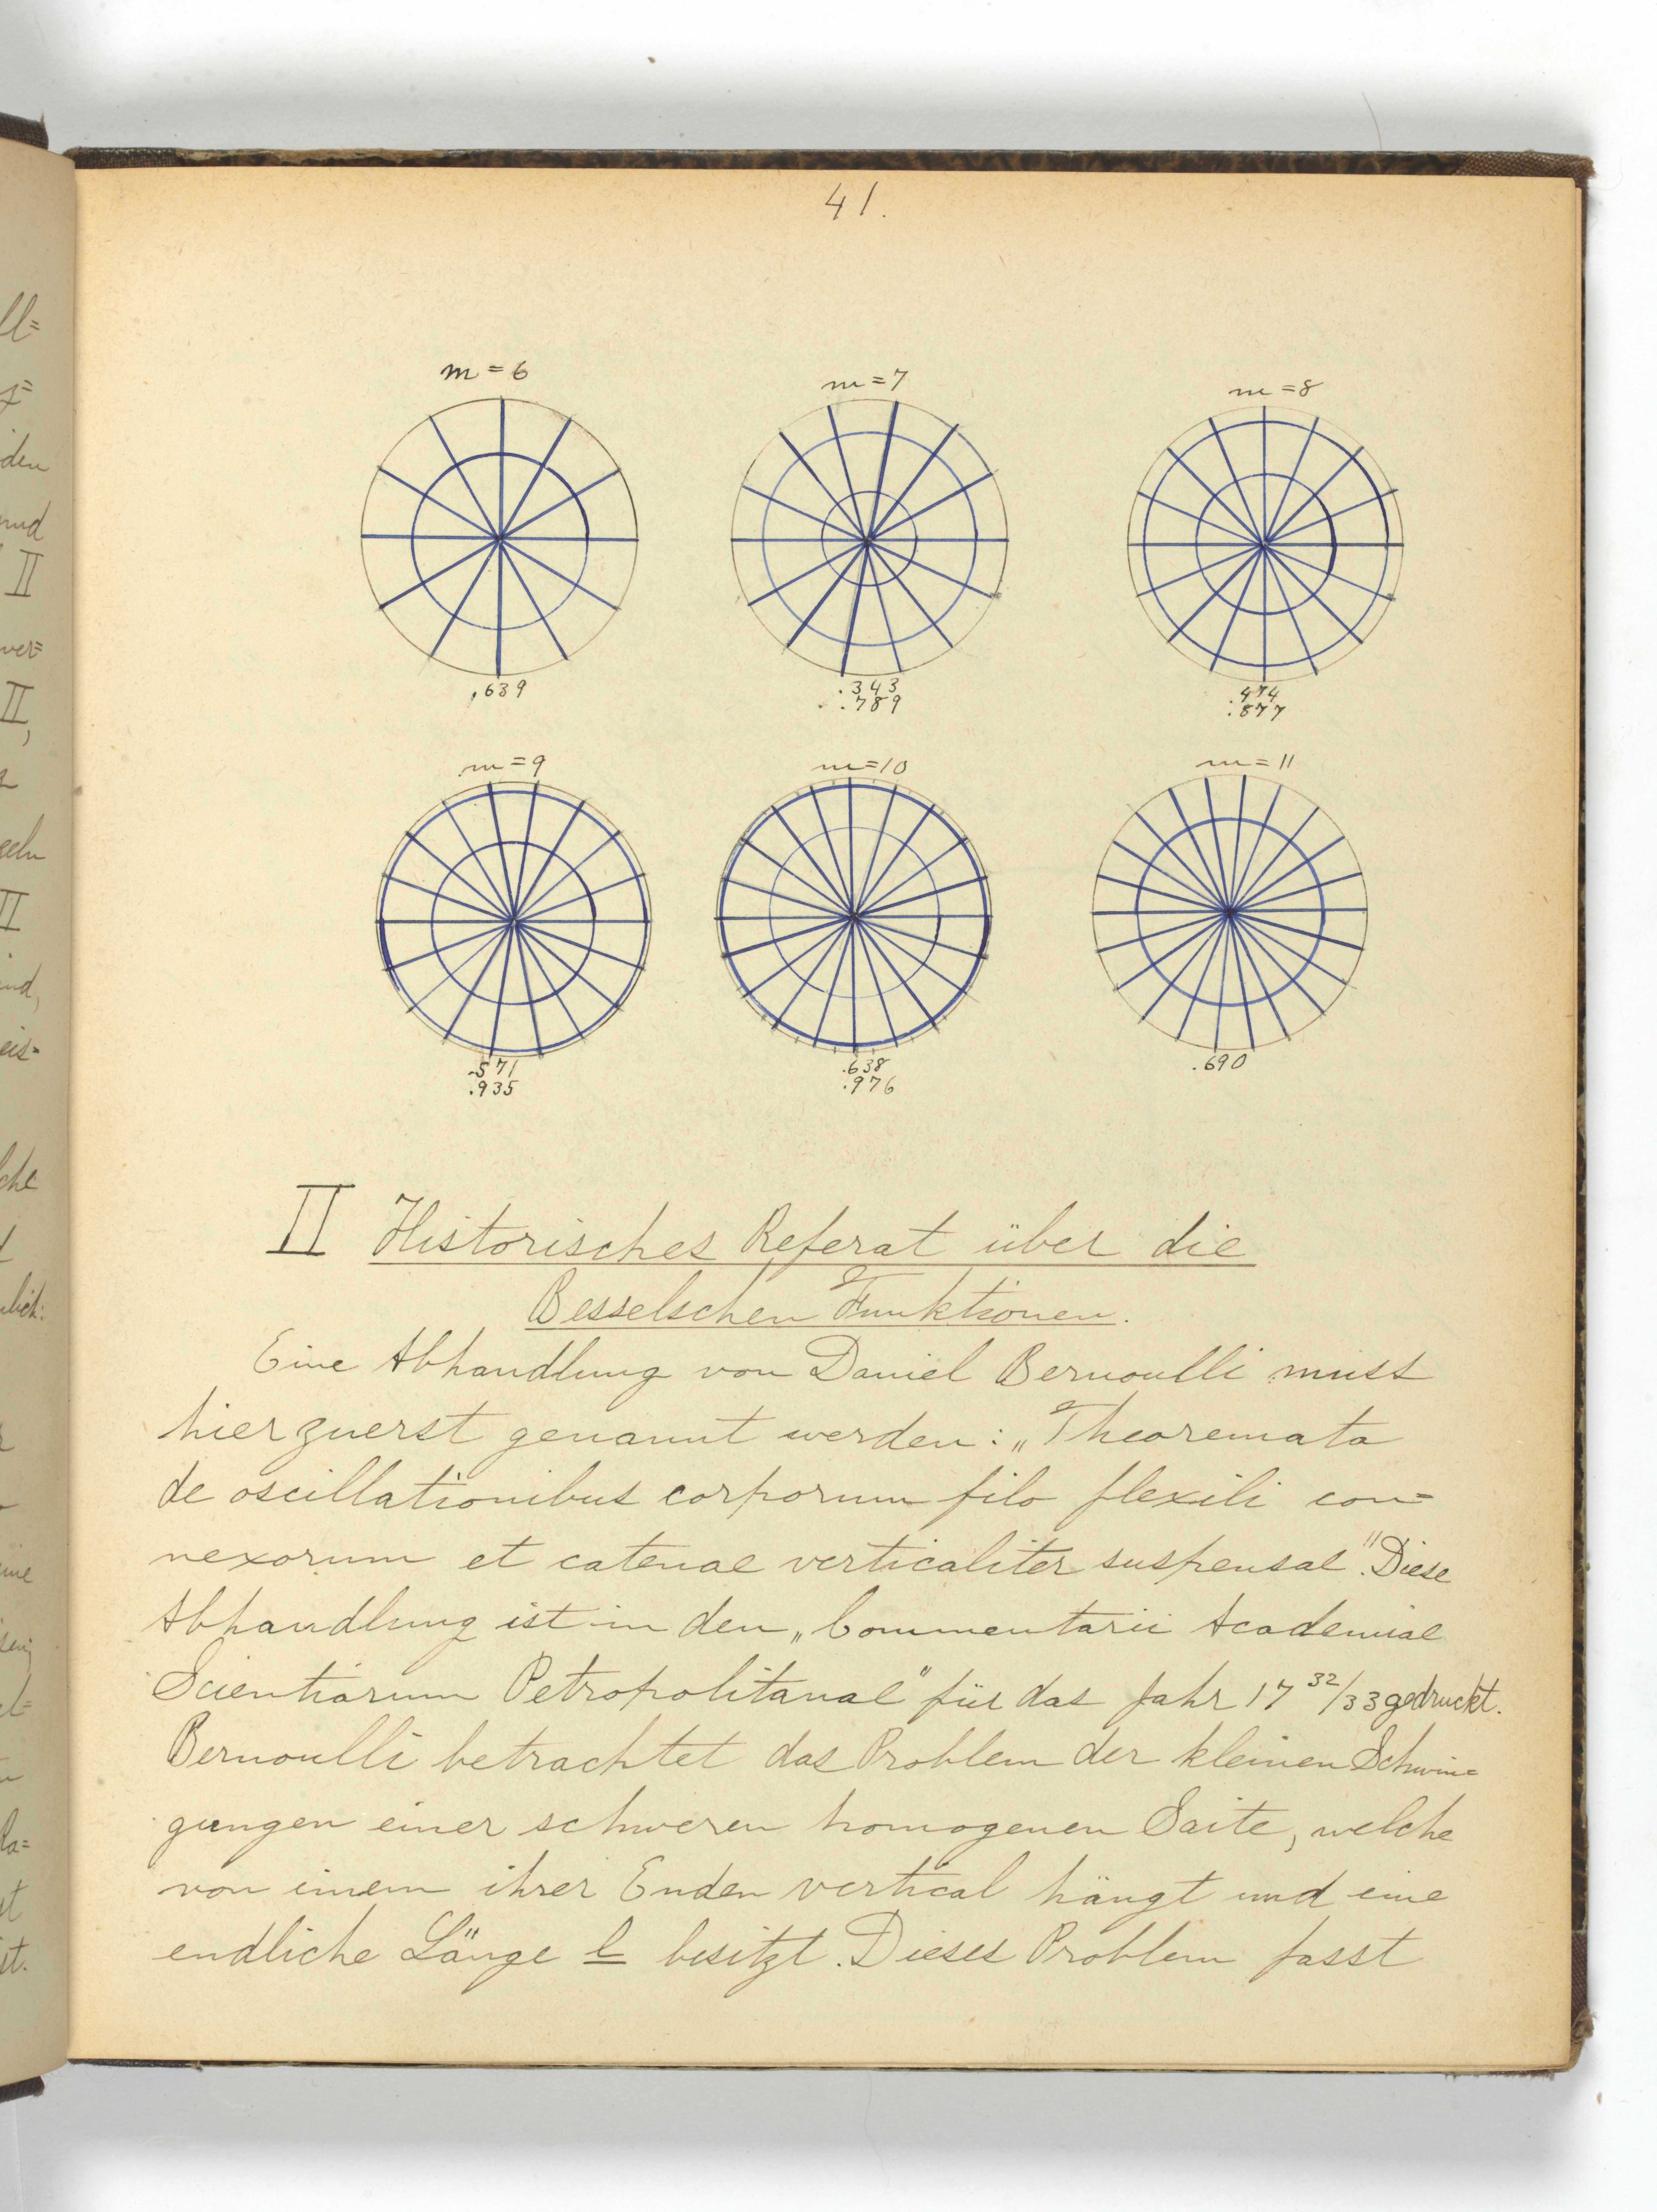 41.
m=6
m=7
m=8
.639
.343
.789
.474
.877
m=9
m=10
m=11
.571
.935
.638
.976
.690
II Historisches Referat über die
Besselschen Funktionen.
Eine Abhandlung von Daniel Bernoulli muss
hier zuerst genannt werden: „Theoremata
de oscillationibus corporum filo flexili con=
nexorum et catenae verticaliter suspensae". Diese
Abhandlung ist in den „Commentarii Academiae
Scientiarum Petropolitanae" für das Jahr 17 32/33 gedruckt.
Bernoulli betrachtet das Problem der kleinen Schwin=
gungen einer schweren homogenen Saite, welche
von einem ihrer Enden vertical hängt und eine
endliche Länge l besitzt. Dieses Problem fasst